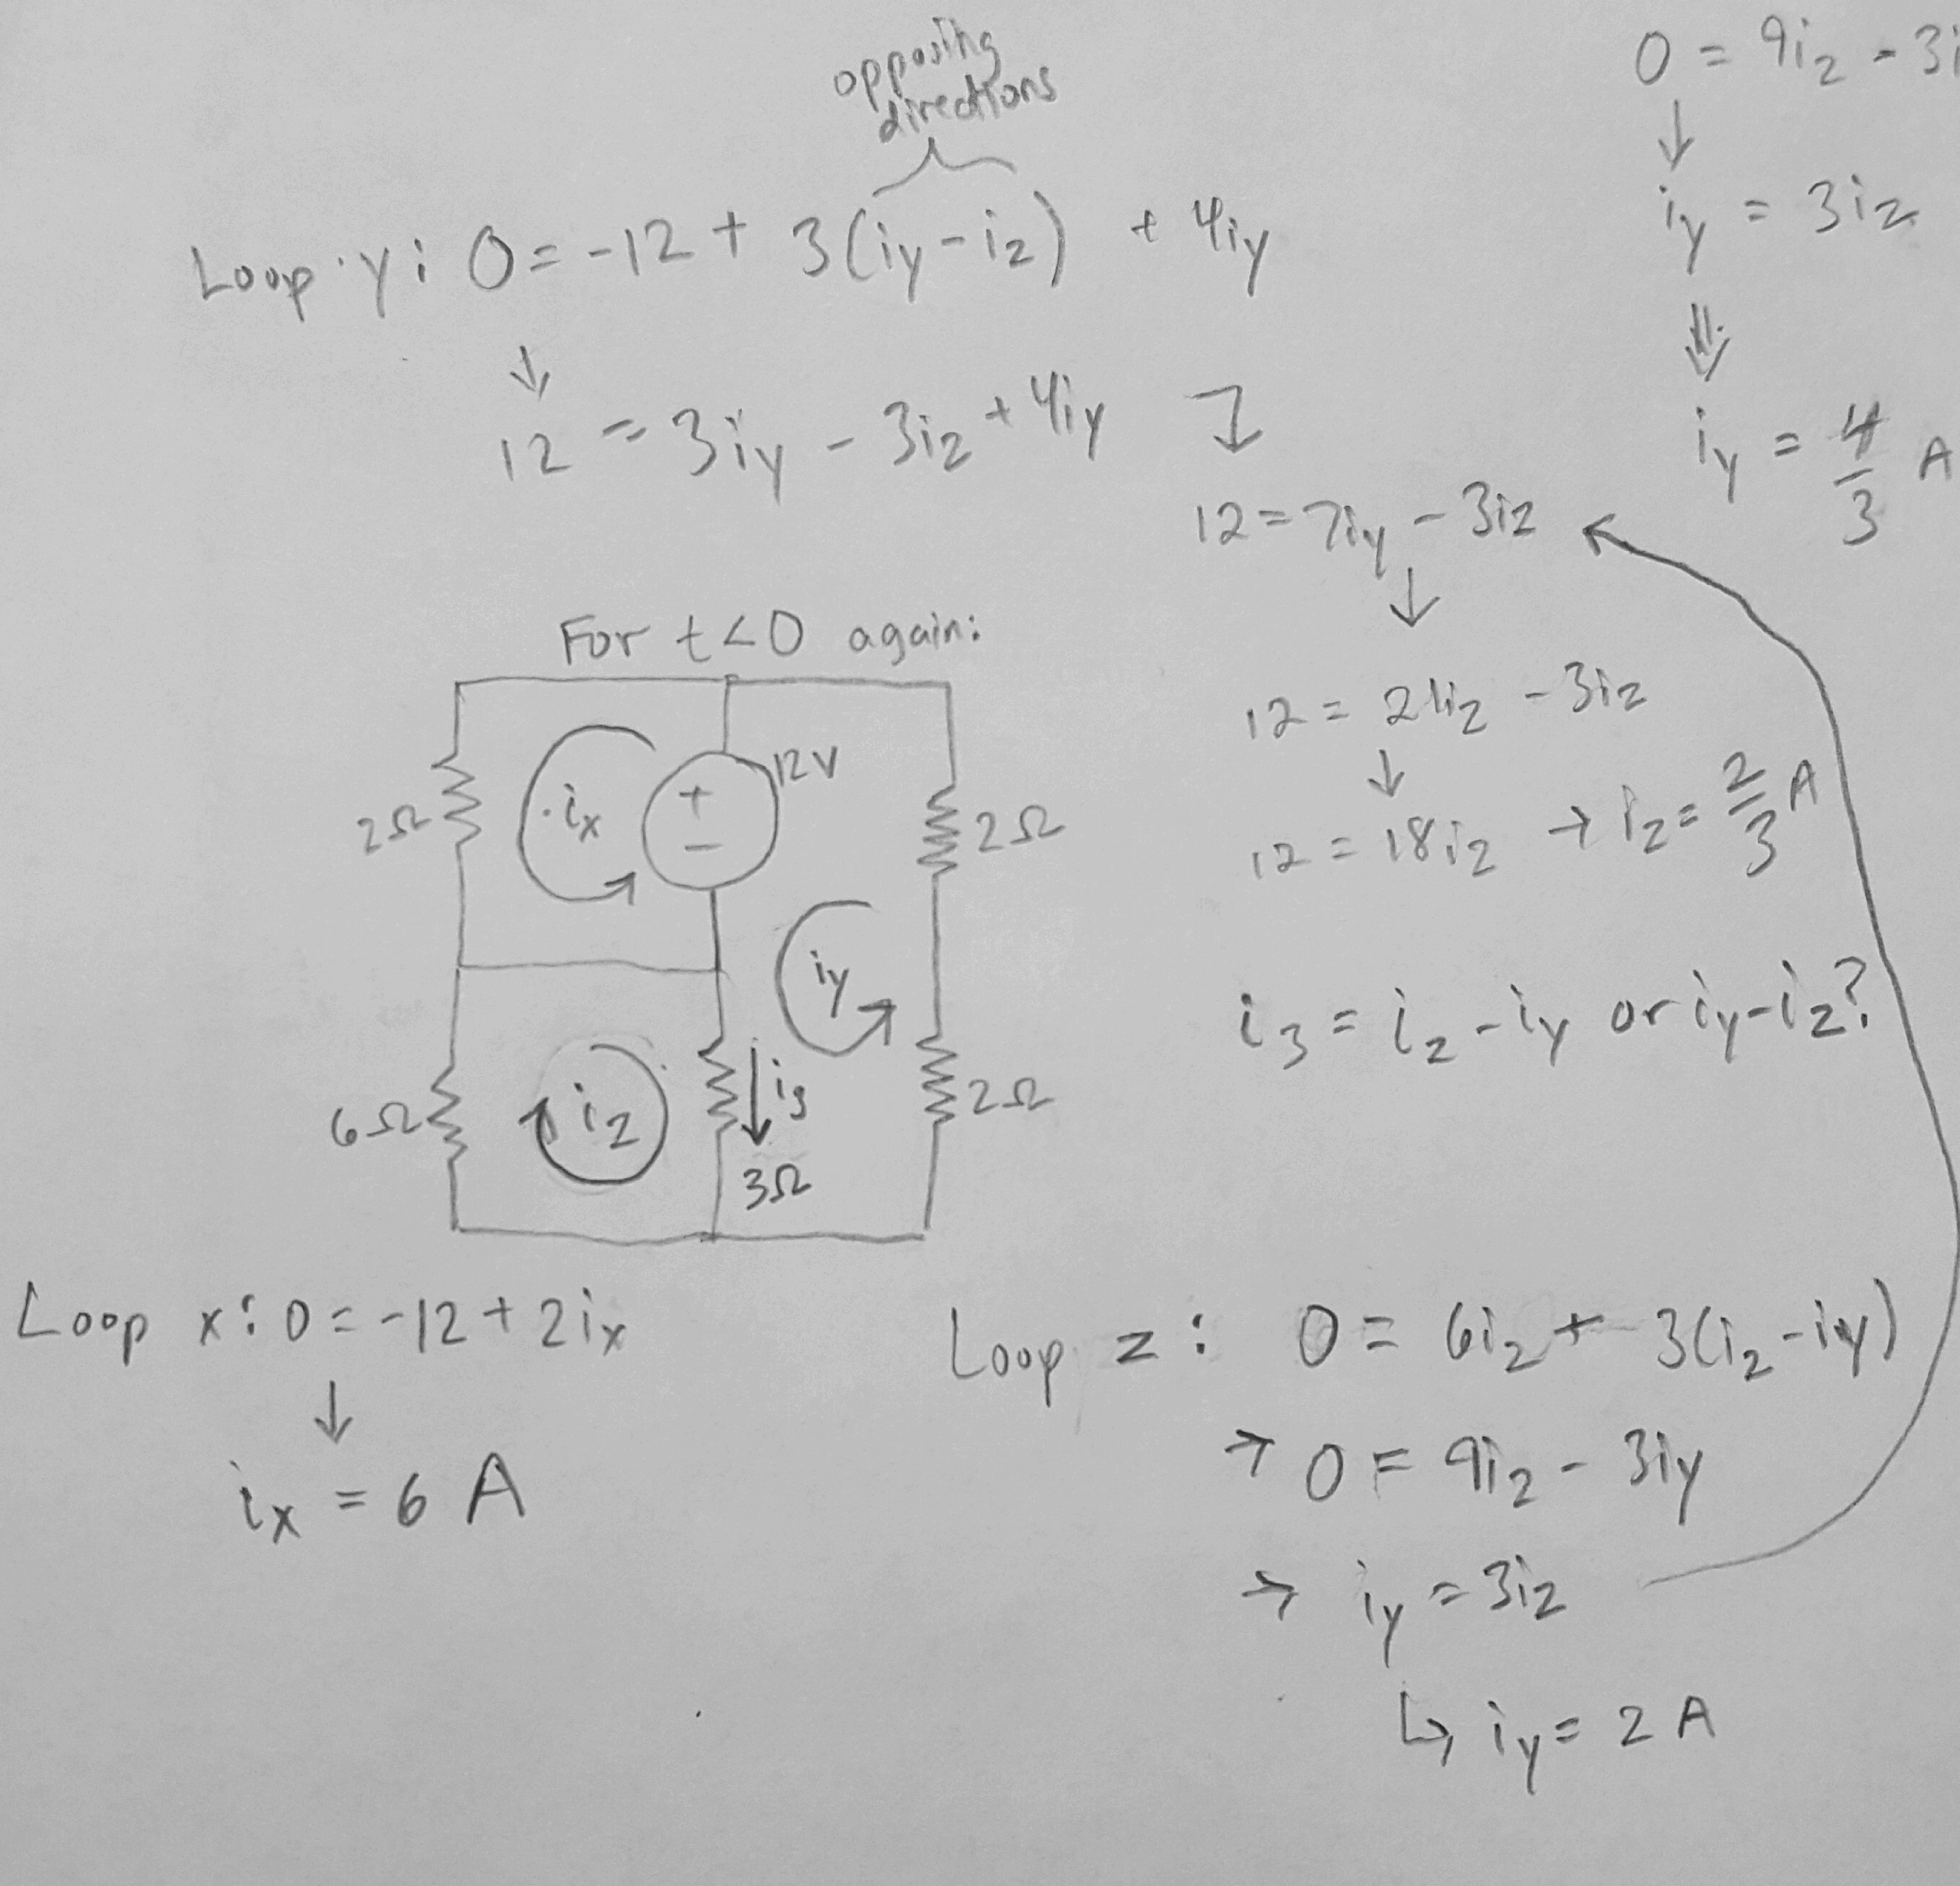 opposing
directions
Loop y: 0 = -12 + 3(iy - iz) + 4iy
↓
12 = 3iy - 3iz + 4iy
12 = 7iy - 3iz
↓
12 = 21iz - 3iz
↓
12 = 18iz → iz = 2/3 A
i3 = iz - iy or iy - iz?
0 = 9iz - 3i
↓
iy = 3iz
⇓
iy = 4/3 A
For t < 0 again:
2Ω
ix
+
-
12V
2Ω
iy
6Ω
iz
i3
3Ω
2Ω
Loop x: 0 = -12 + 2ix
↓
ix = 6 A
Loop z: 0 = 6iz + 3(iz - iy)
→ 0 = 9iz - 3iy
→ iy = 3iz
↳ iy = 2 A